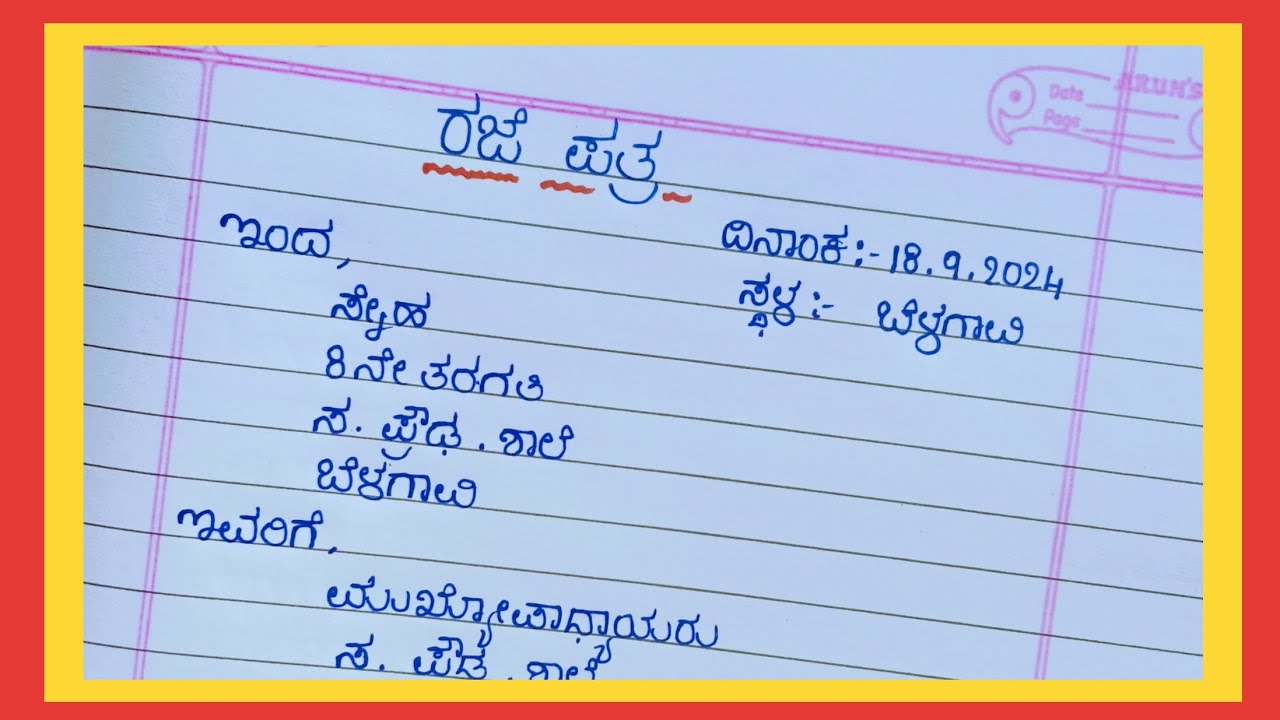 ARUN'S
Date
Page
ರಜೆ ಪತ್ರ
ಇಂದ,
ದಿನಾಂಕ:-18.9.2024
ಸ್ಥಳ:- ಬೆಳಗಾವಿ
ಸ್ನೇಹ
8ನೇ ತರಗತಿ
ಸ. ಪ್ರೌಢ. ಶಾಲೆ
ಬೆಳಗಾವಿ
ಇವರಿಗೆ,
ಮುಖ್ಯೋಪಾಧ್ಯಾಯರು
ಸ. ಪ್ರೌಢ. ಶಾಲೆ